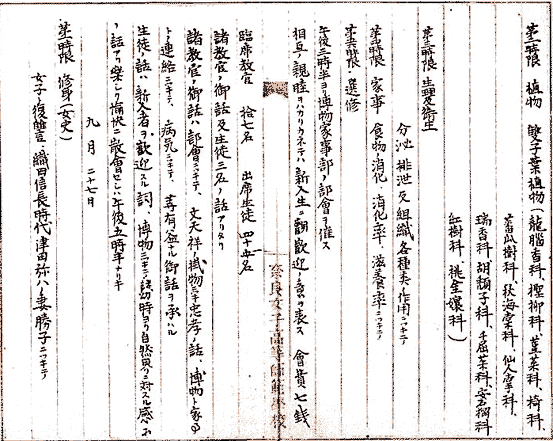 第一時限 植物 雙子葉植物(龍腦香科、檉柳科、菫菜科、椅科、
蕃瓜樹科、秋海棠科、仙人掌科、
瑞香科、胡頽子科、千屈菜科、安石榴科
紅樹科、桃金孃科)
第三時限 生理及衛生
分泌排泄及組織各種類ノ作用ニツキテ
第四時限 家事 食物消化、消化率、滋養率ニツキテ
第五六限、選修
午後三時半ヨリ博物家事部ノ部會ヲ催ス
相互ノ親睦ヲハカリカネテハ新入生ニ歡迎ノ意ヲ表ス 會費七錢
臨席教官 拾七名 出席生徒 四十五名
諸教官ノ御話及生徒三名ノ話アリタリ
諸教官ノ御話ハ部會ニツキテ、文天祥ノ掛物ト忠孝ノ話、博物ト家事
トノ連絡ニツキテ、病児ニツキテ、等有益ナル御話ヲ承ハル
生徒ノ話ハ新入者ヲ歡迎スル詞、博物ニツキテ、幼時ヨリ自然界ニ対スル感等
ノ話アリ樂シク愉快ニ散會セシハ午後五時半ナリキ
九月二十七日
第一時限 修身(女史)
女子ノ復讐、織田信長時代津田弥八ノ妻勝子ニツキテ
奈良女子高等師範學校